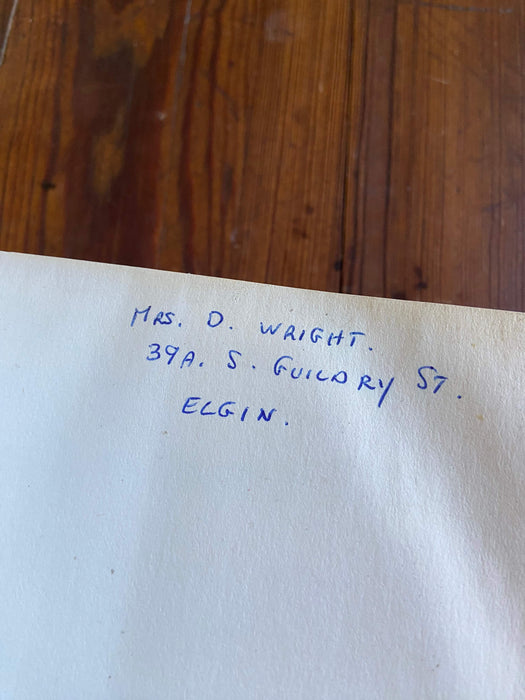 Mrs. D. WRIGHT.
39A. S. GUILDRY ST.
ELGIN.